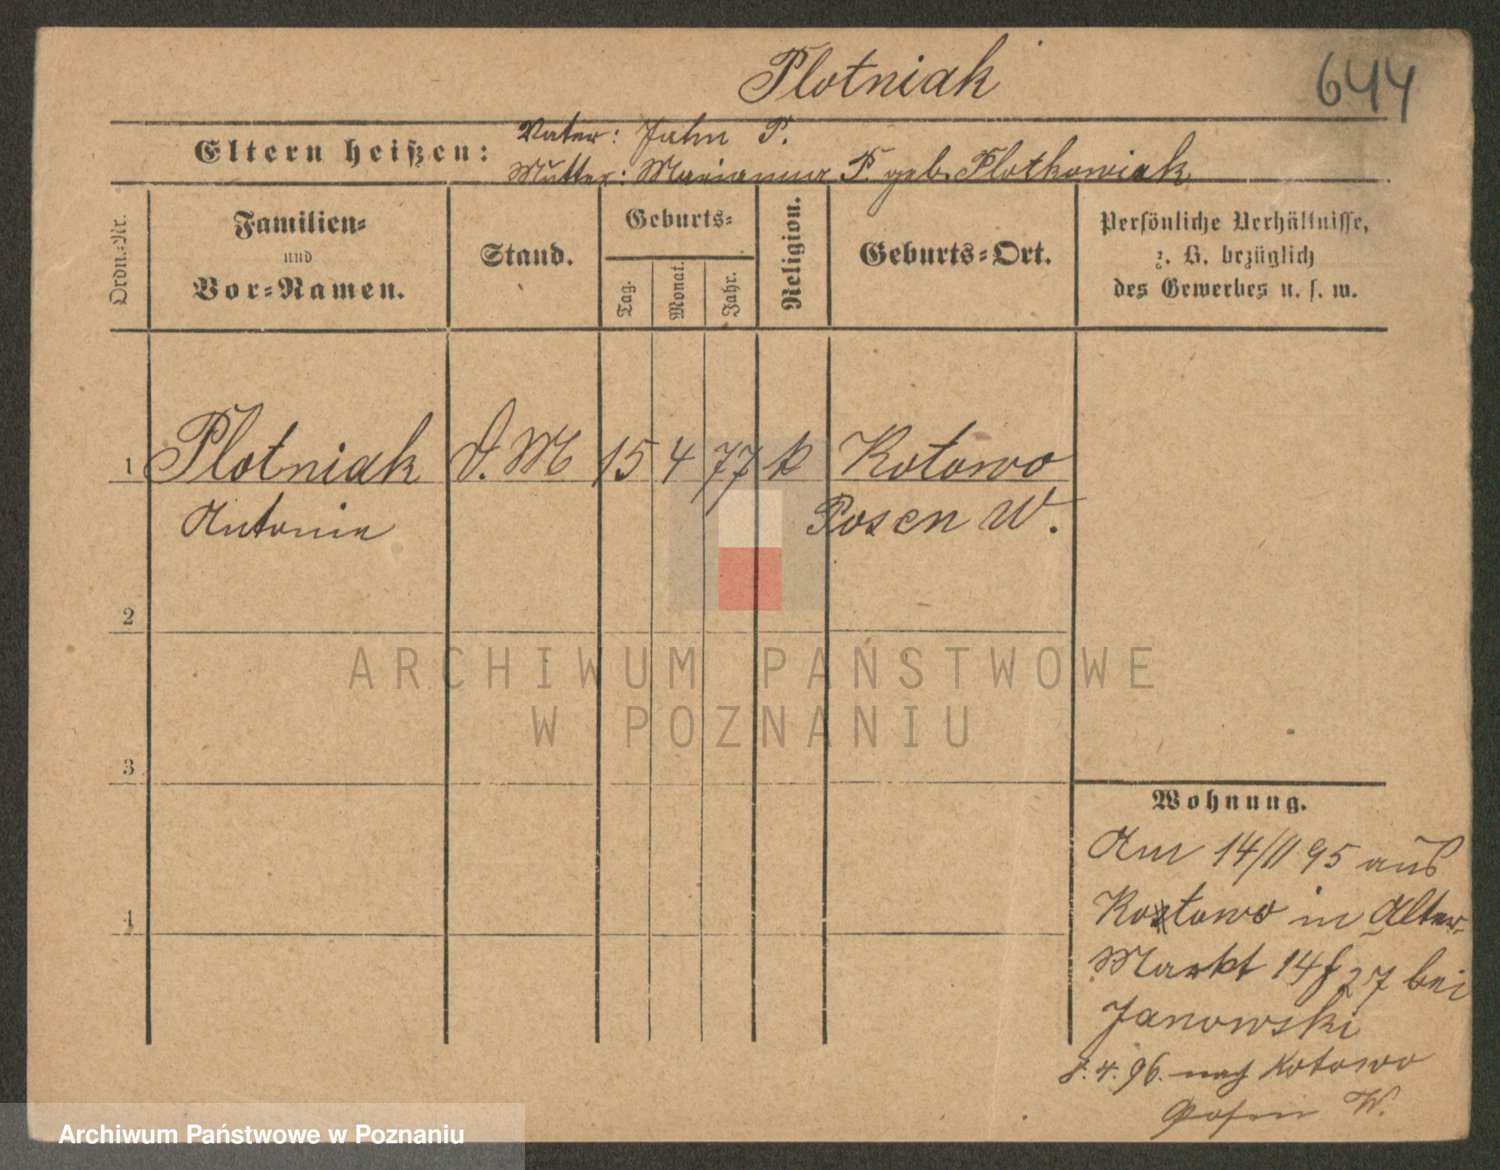 Plotniak
644
Eltern heißen:
Vater: Jahn P.
Mutter: Marianna P. geb. Plotkowiak
Ordn.-Nr.
Familien-
und
Vor-Namen.
Stand.
Geburts-
Tag.
Monat.
Jahr.
Religion.
Geburts-Ort.
Persönliche Verhältnisse,
z. B. bezüglich
des Gewerbes u. s. w.
1 Plotniak D. M 15 4 77 k Kotowo
Antonie Posen W.
2
3
4
ARCHIWUM PAŃSTWOWE
W POZNANIU
Wohnung.
Am 14/11 95 aus
Kotowo in Alter
Markt 14 27 bei
Janowski
8.4.96. nach Kotowo
Posen W.
Archiwum Państwowe w Poznaniu